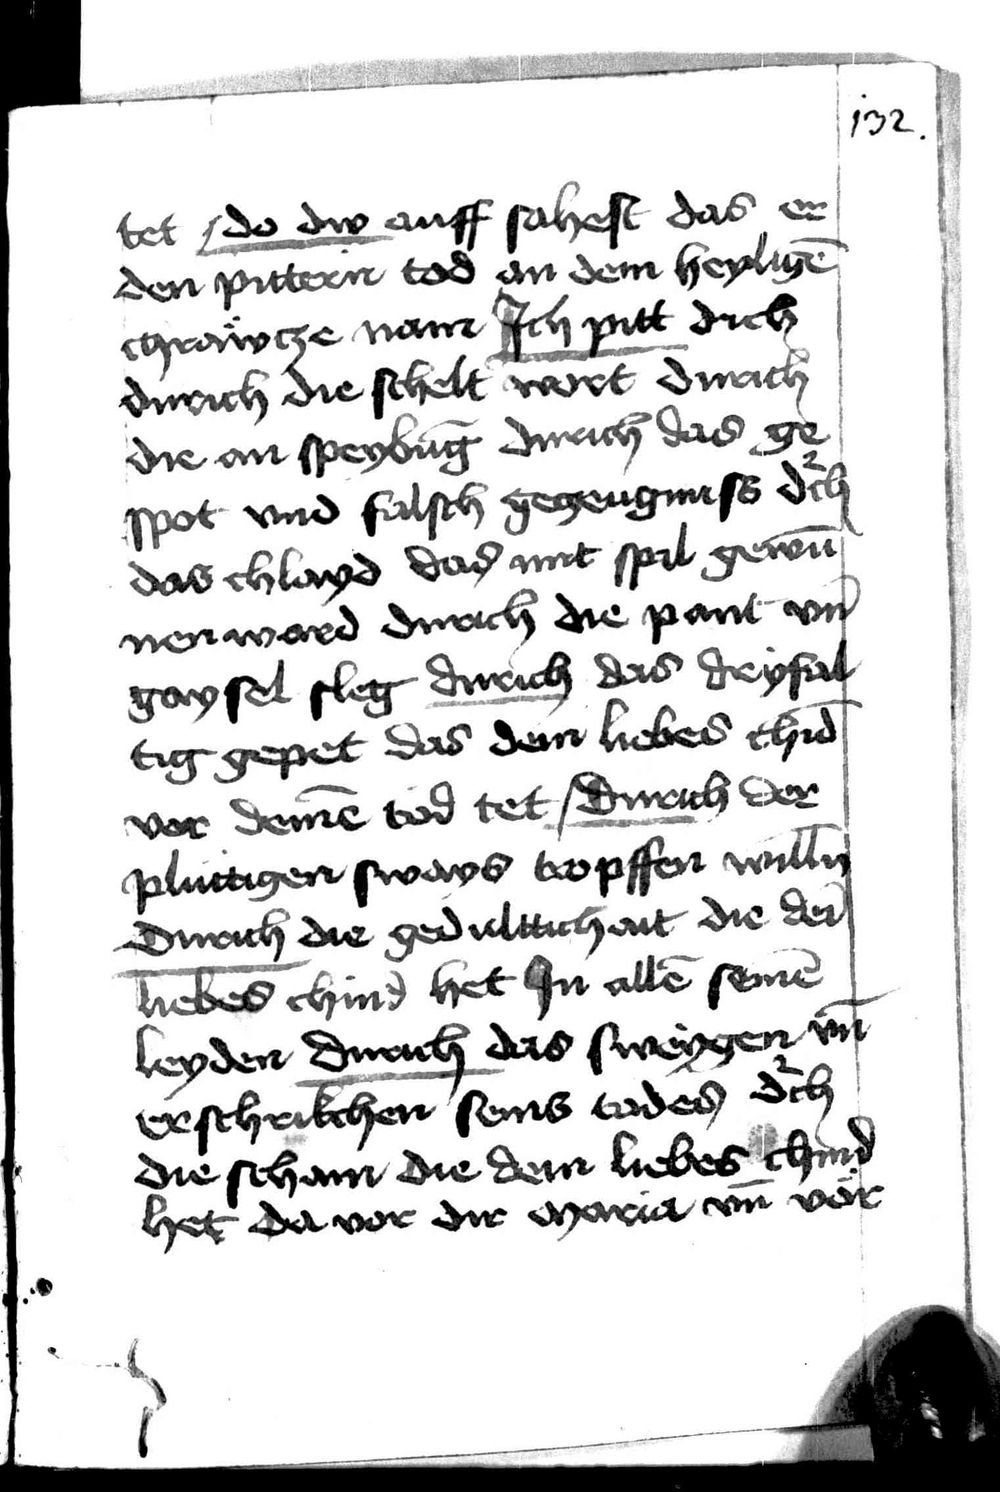 132.
tet do dw auff sahest das er
den pittern tod an dem heyligē
chräwcze nam Ich pitt dich
durich die schelt wort durich
die an speybūg durich das ge
spot vnd falsch geczeugnuss dͬch
das chlayd das mit spil gewū
nen ward durich die pant vn̄
gaysel sleg durich das dryfal
tig gepet das dein liebes chīd
vor deinē tod tet Durich der
pluittigen sways tropffen willn̄
Durich die gedultichait die dei
liebes chind het In allē seinē
leyden Durich das sweygen vn̄
erschrikchen seins todes dͬch
die scham die dein liebes chind
het da vor dir Maria vn̄ vor